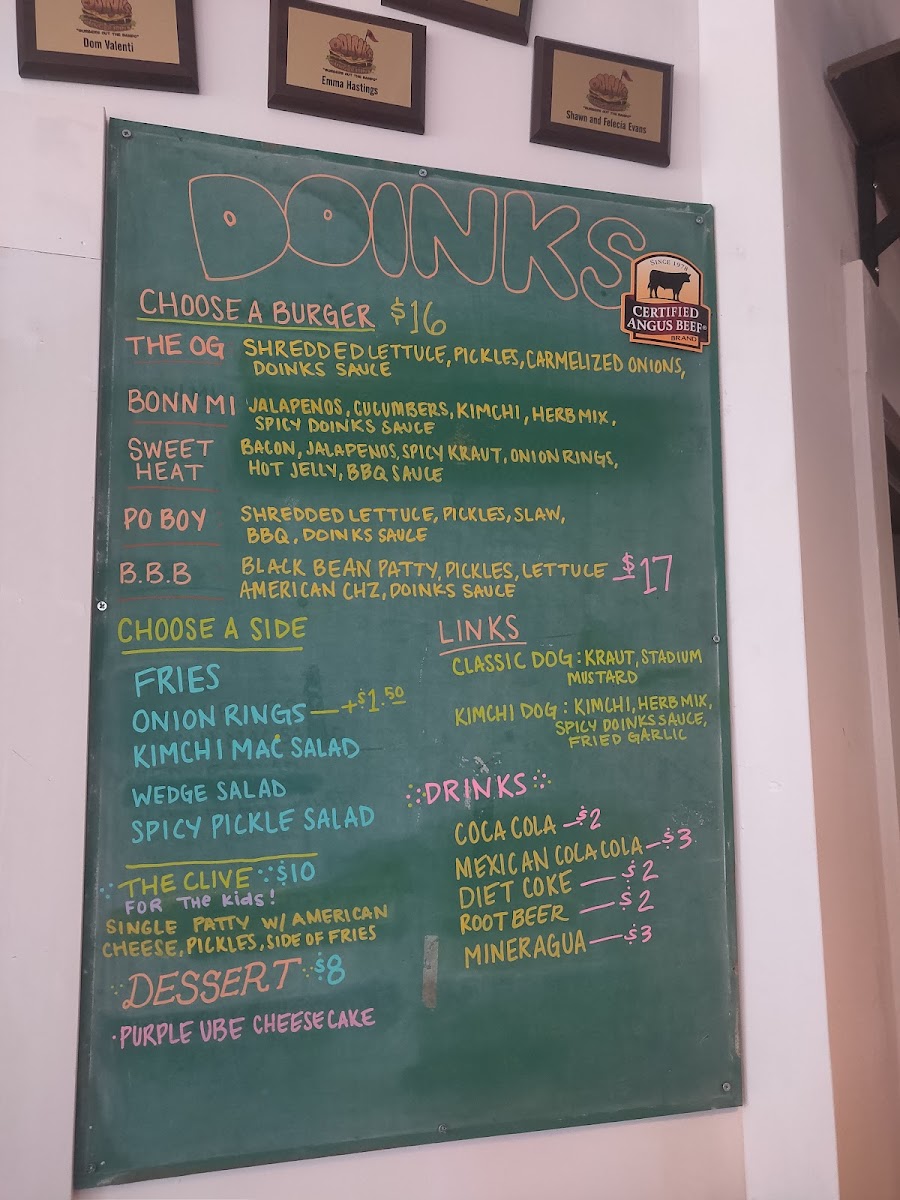 "BURGERS OUT THE BANDO"
Dom Valenti
DOINKS
"BURGERS OUT THE BANDO"
Emma Hastings
DOINKS
"BURGERS OUT THE BANDO"
Shawn and Felecia Evans
DOINKS
SINCE 1978
CERTIFIED
ANGUS BEEF®
BRAND
CHOOSE A BURGER $16
THE OG SHREDDED LETTUCE, PICKLES, CARMELIZED ONIONS,
DOINKS SAUCE
BONN MI JALAPENOS, CUCUMBERS, KIMCHI, HERB MIX,
SPICY DOINKS SAUCE
SWEET HEAT BACON, JALAPENOS, SPICY KRAUT, ONION RINGS,
HOT JELLY, BBQ SAUCE
PO BOY SHREDDED LETTUCE, PICKLES, SLAW,
BBQ, DOINKS SAUCE
B.B.B BLACK BEAN PATTY, PICKLES, LETTUCE $17
AMERICAN CHZ, DOINKS SAUCE
CHOOSE A SIDE
FRIES
ONION RINGS — +$1.50
KIMCHI MAC SALAD
WEDGE SALAD
SPICY PICKLE SALAD
THE CLIVE $10
FOR THE KIDS!
SINGLE PATTY W/ AMERICAN
CHEESE, PICKLES, SIDE OF FRIES
DESSERT $8
· PURPLE UBE CHEESECAKE
LINKS
CLASSIC DOG: KRAUT, STADIUM
MUSTARD
KIMCHI DOG: KIMCHI, HERB MIX,
SPICY DOINKS SAUCE,
FRIED GARLIC
DRINKS
COCA COLA — $2
MEXICAN COCA COLA — $3
DIET COKE — $2
ROOT BEER — $2
MINERAGUA — $3